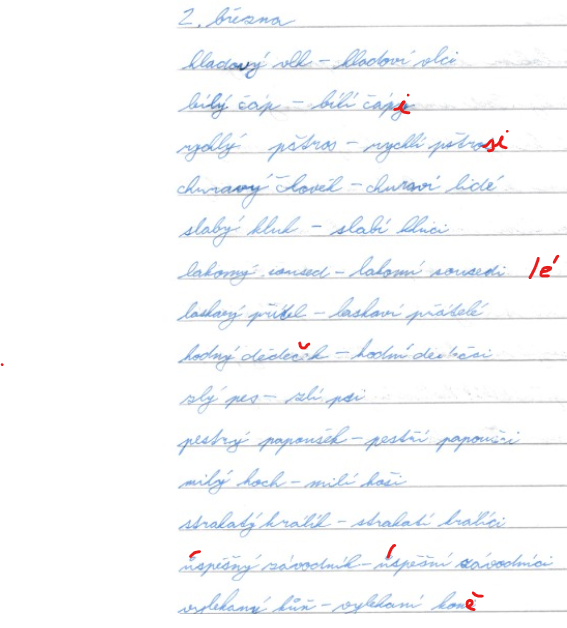 2. března
hladový vlk – hladoví vlci
bílý čáp – bílí čápi
rychlý pštros – rychlí pštrosi
churavý člověk – churaví lidé
slabý kluk – slabí kluci
lakomý soused – lakomí sousedi /é
laskavý přítel – laskaví přátelé
hodný dědeček – hodní dědečci
zlý pes – zlí psi
pestrý papoušek – pestří papoušci
milý hoch – milí hoši
strakatý králík – strakatí králíci
úspěšný závodník – úspěšní závodníci
vylekaný kůň – vylekaní koně